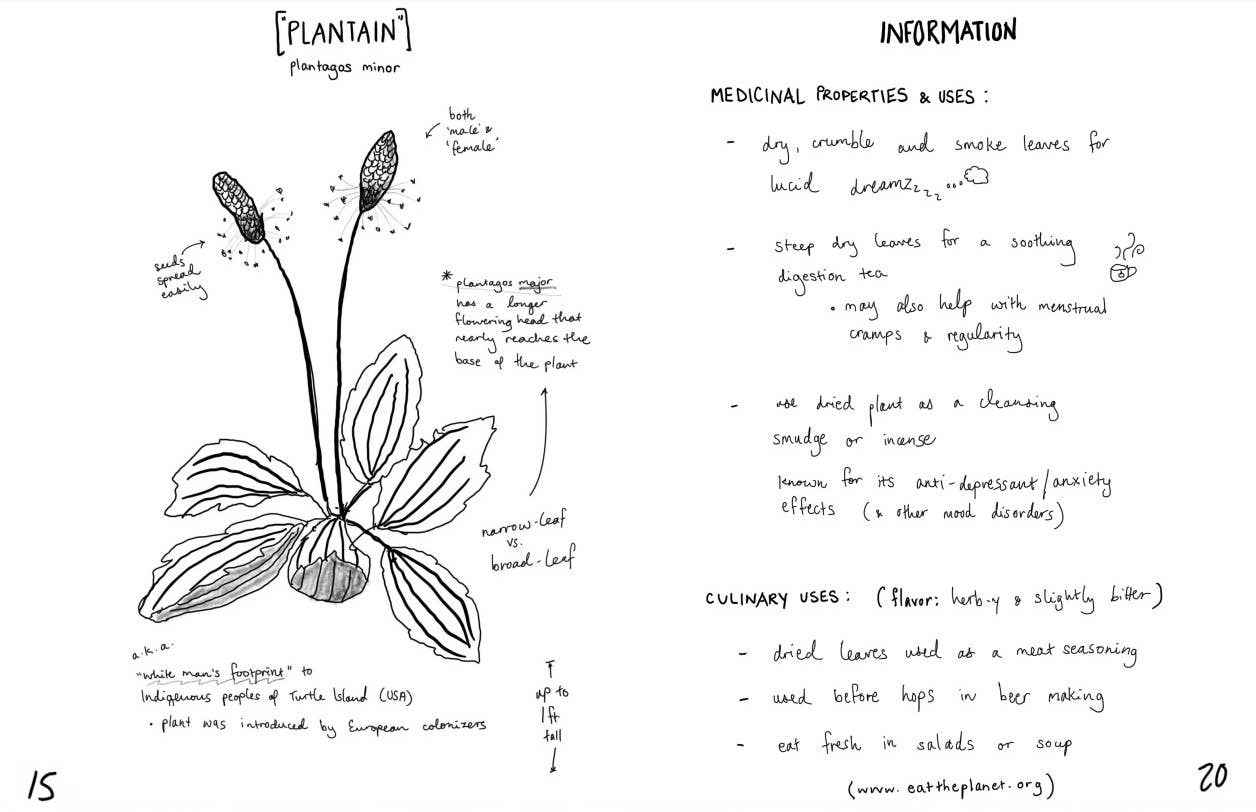 ["PLANTAIN"]
plantagos minor
both
'male' &
'female'
seeds
spread
easily
* plantagos major
has a longer
flowering head that
nearly reaches the
base of the plant
narrow-leaf
vs.
broad-leaf
a.k.a.
"white man's footprint" to
Indigenous peoples of Turtle Island (USA)
• plant was introduced by European colonizers
up to
1 ft
tall
15
INFORMATION
MEDICINAL PROPERTIES & USES:
- dry, crumble and smoke leaves for
lucid dreamzzzz...
- steep dry leaves for a soothing
digestion tea
• may also help with menstrual
cramps & regularity
- use dried plant as a cleansing
smudge or incense
known for its anti-depressant/anxiety
effects (& other mood disorders)
CULINARY USES: (flavor: herb-y & slightly bitter)
- dried leaves used as a meat seasoning
- used before hops in beer making
- eat fresh in salads or soup
(www.eattheplanet.org)
20